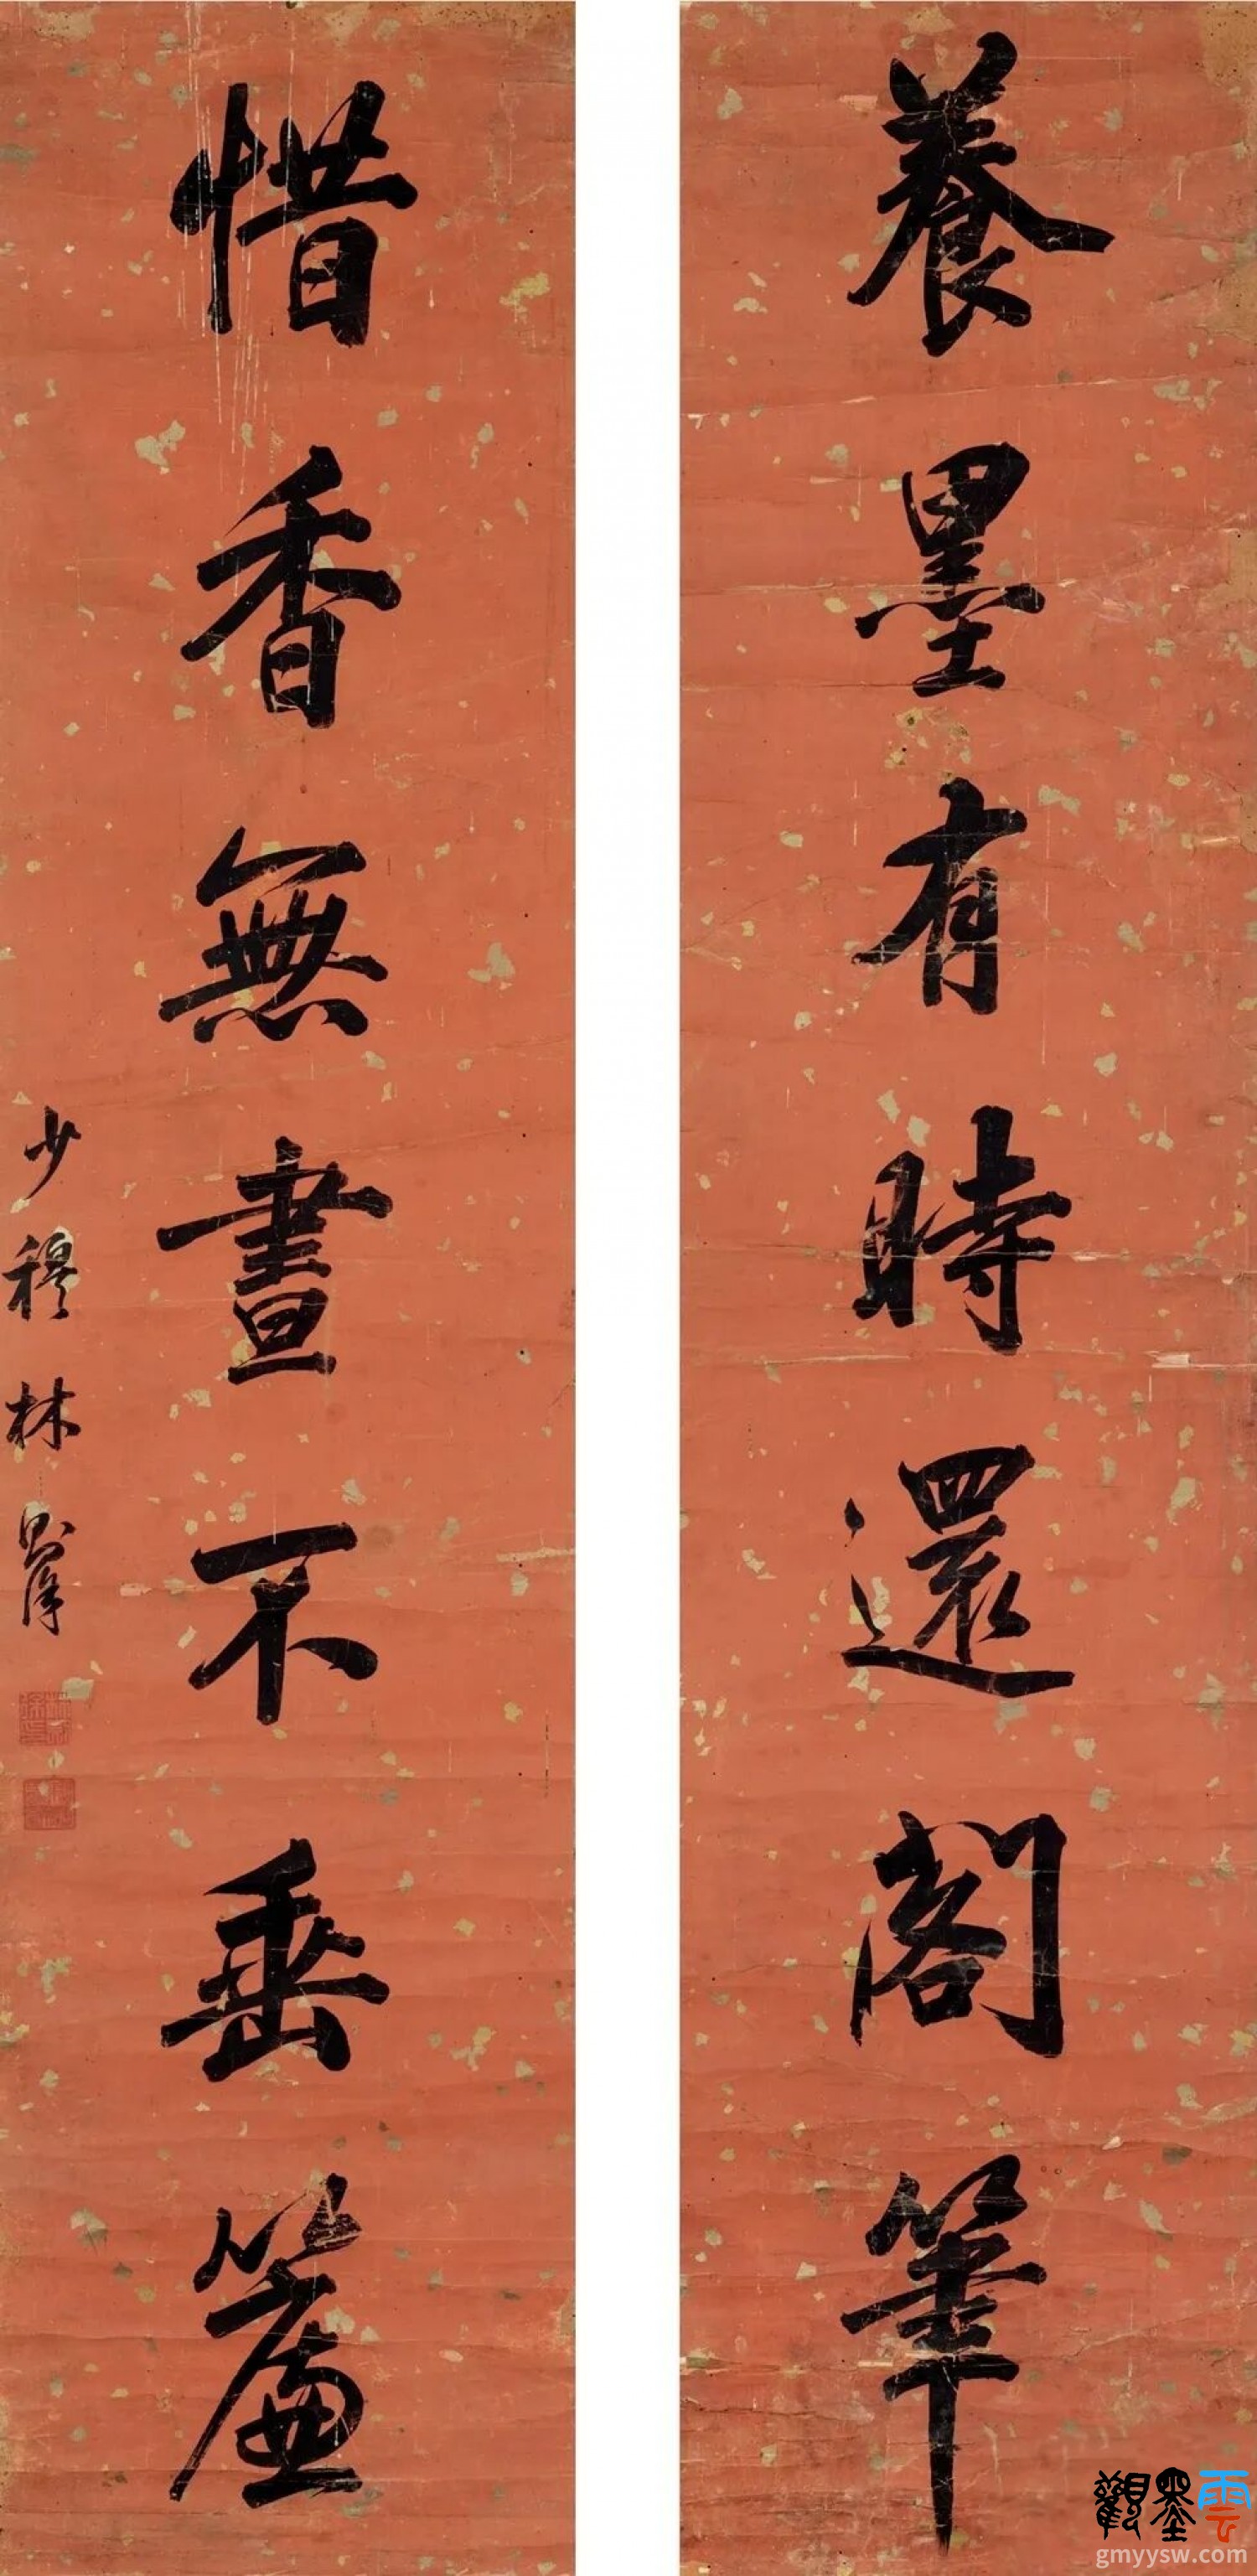 養墨有時還閣筆
惜香無晝不垂簾
少穆林則徐
觀墨雲
gmyysw.com